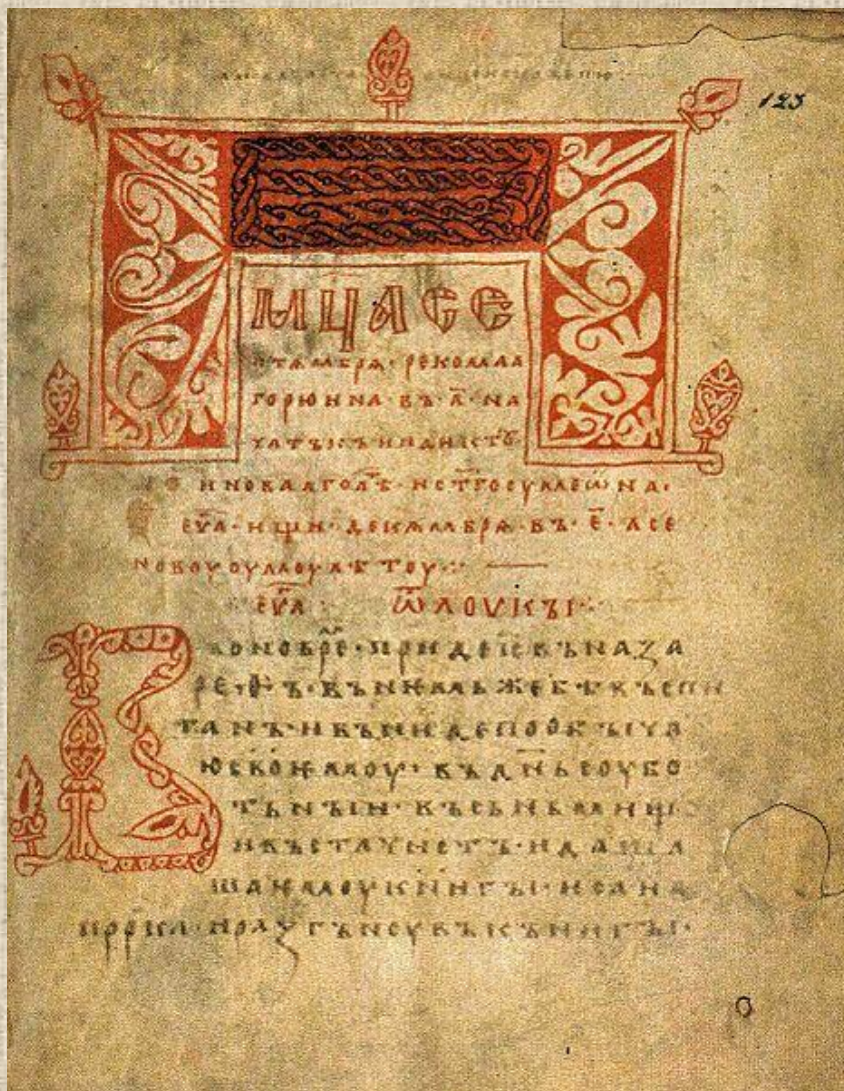 123
МЦА СЕ
птѧмбрѧ· рекомаа
горюина· въ·а҃· на
чатъкъ индикто
и новааго лѣ· и ст҃го сумеѡна·
еу҃а· ищи· декѧмбрѧ· въ· е҃· а се
новоуоумоу лѣтоу·:
еу҃а ѿ лоукꙑ·
Въ оно врѣ· приде і҃с въ наза
ре·ѳъ· въ немьже бѣ въспи
танъ· и въниде по обꙑчѧ
ю своѥмоу· въ дн҃ь соубо
тьнꙑи· въ сьньмищ
и въста чистъ· и да
ша ѥмоу книгꙑ· исаиꙗ
прр҃ка· и разгъноувъ кънигꙑ·